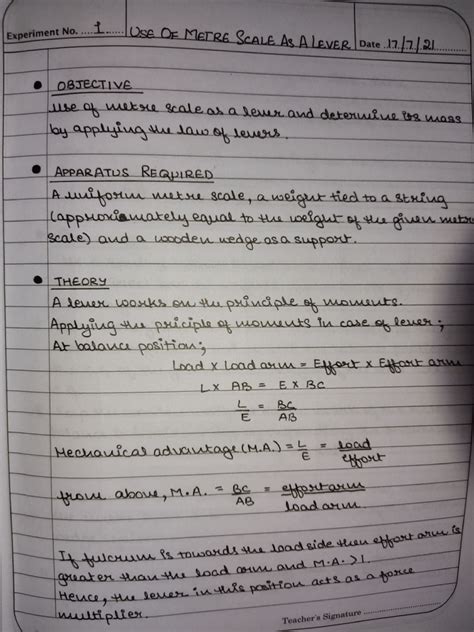 Experiment No. ....1.... USE OF METRE SCALE AS A LEVER Date 17/7/21
• OBJECTIVE
Use of metre scale as a lever and determine its mass
by applying the law of levers.
• APPARATUS REQUIRED
A uniform metre scale, a weight tied to a string
(approximately equal to the weight of the given metre
scale) and a wooden wedge as a support.
• THEORY
A lever works on the principle of moments.
Applying the priciple of moments in case of lever;
At balance position;
Load x Load arm = Effort x Effort arm
L x AB = E x BC
L/E = BC/AB
Mechanical advantage (M.A.) = L/E = load/effort
from above, M.A. = BC/AB = effort arm/load arm.
If fulcrum is towards the load side then effort arm is
greater than the load arm and M.A. > 1.
Hence, the lever in this position acts as a force
multiplier.
Teacher's Signature ..............